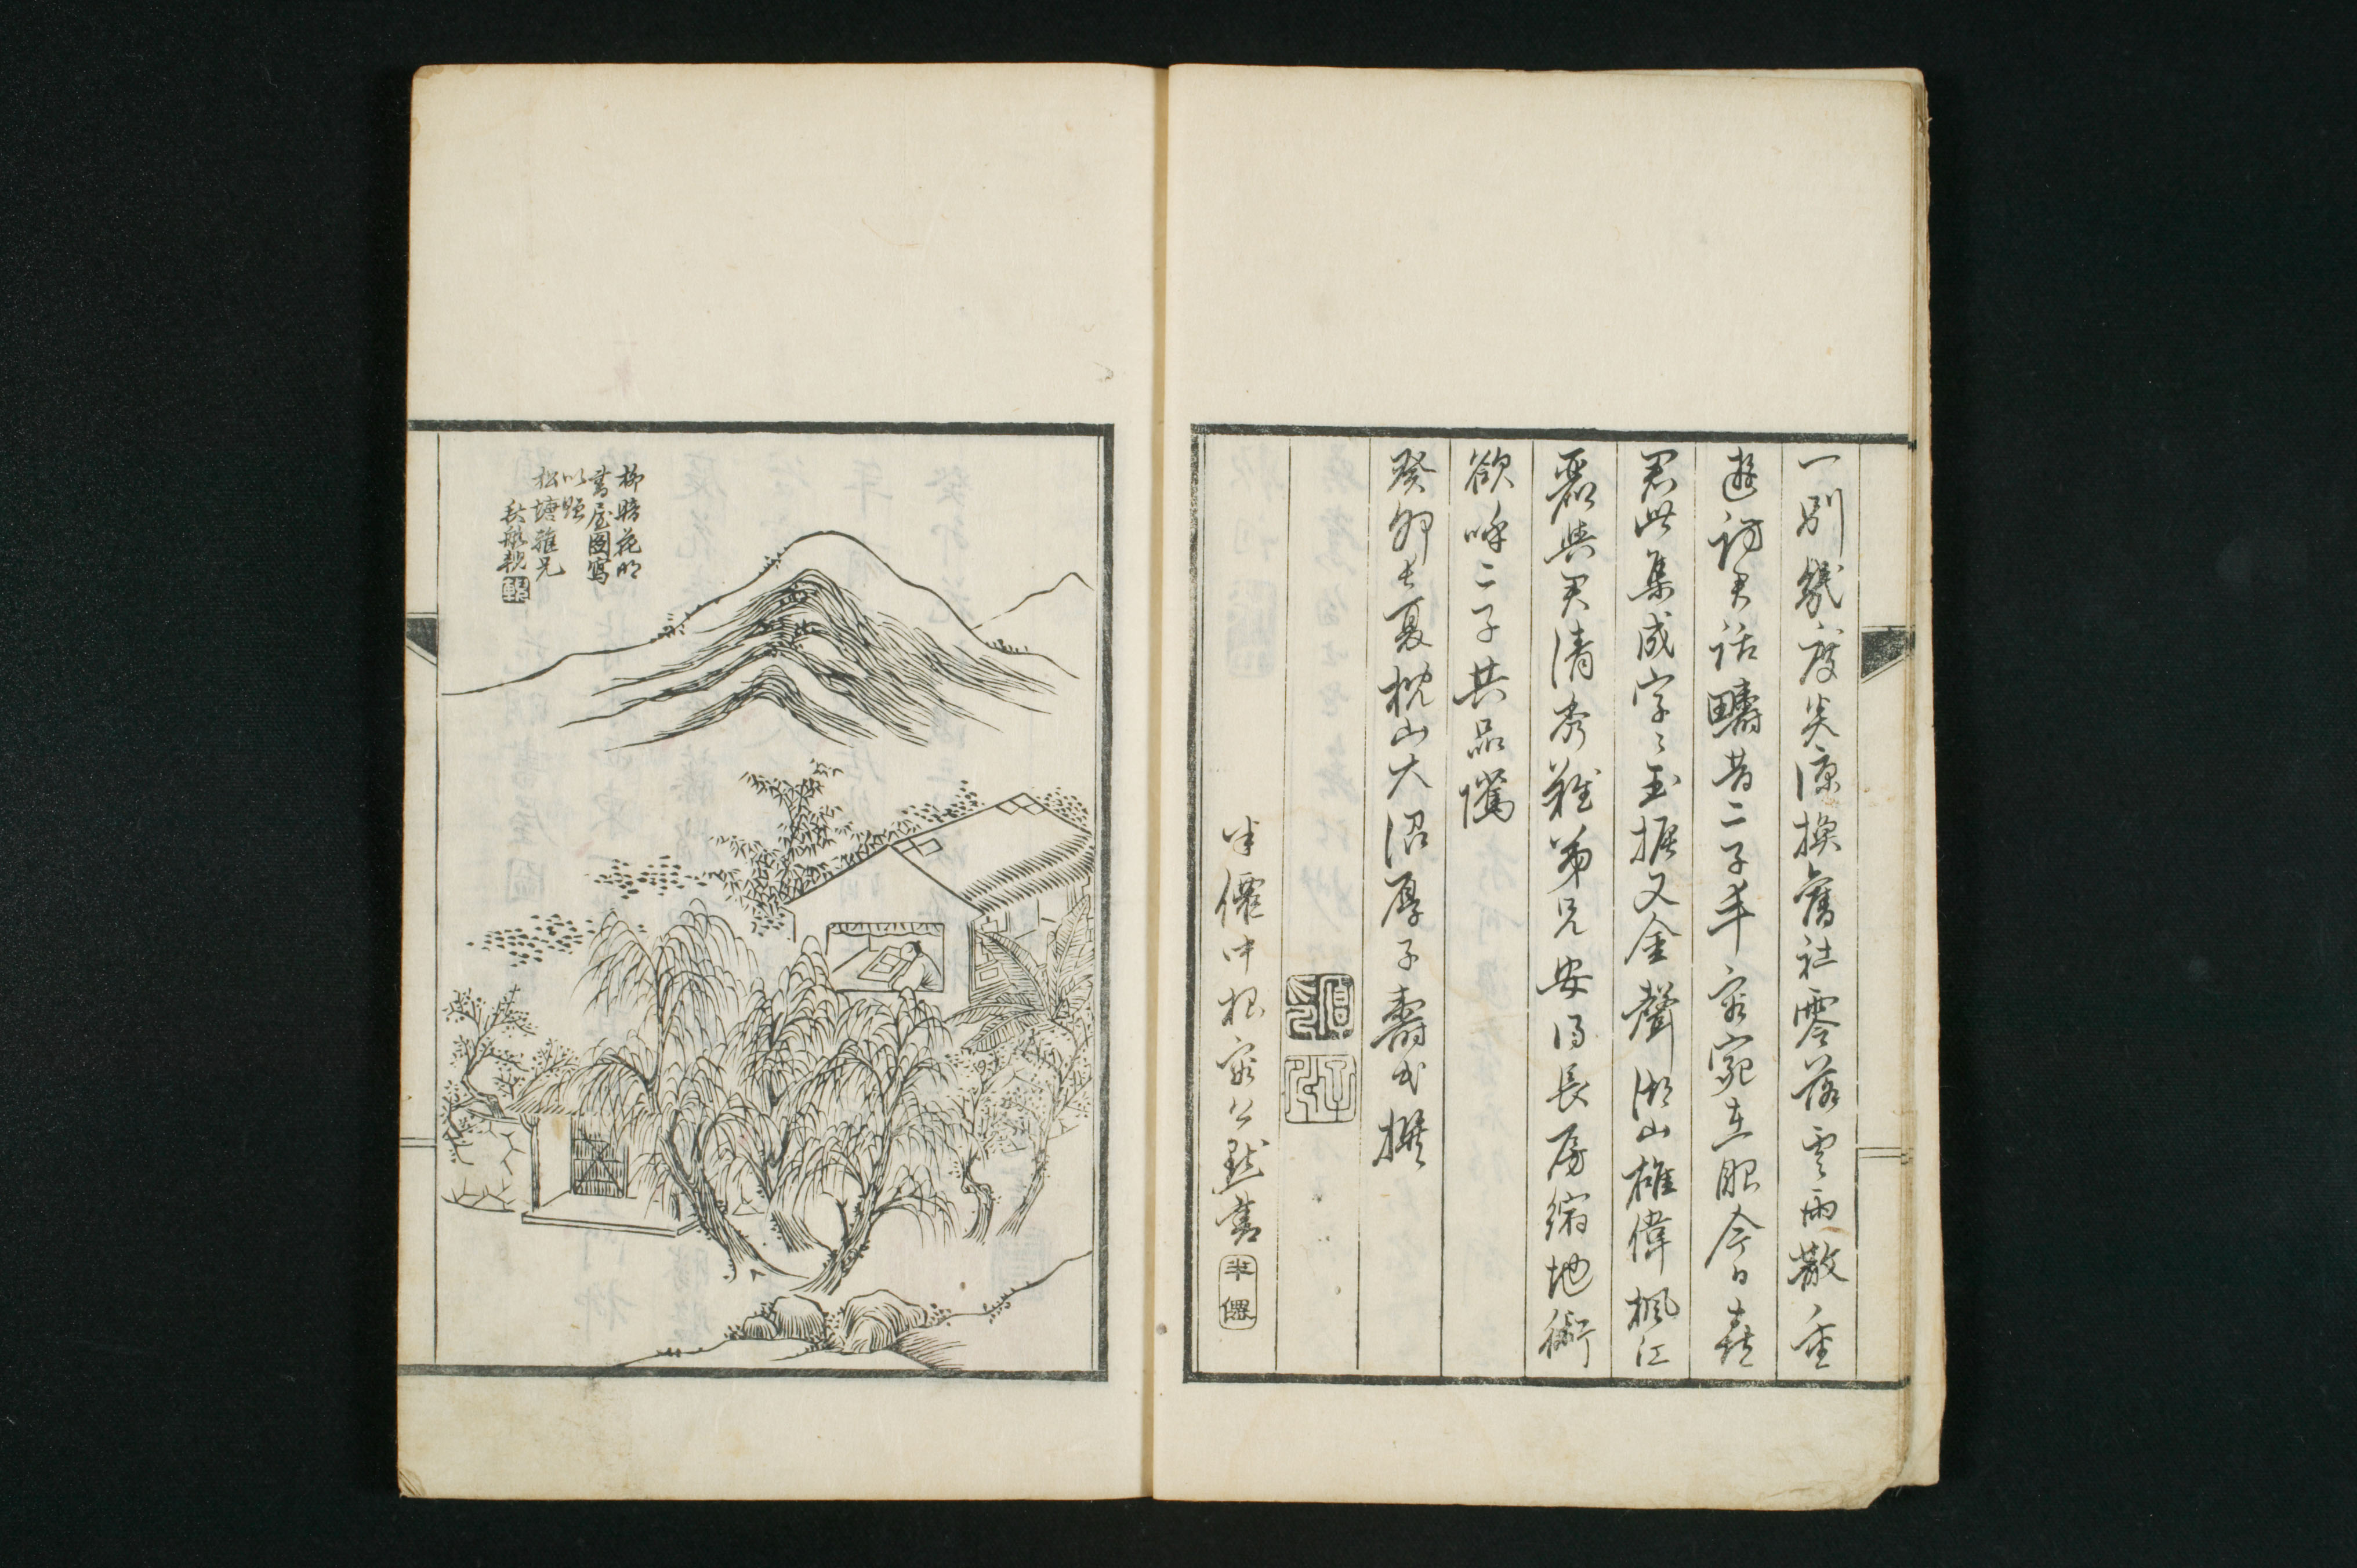 一別幾度炎涼換舊社零落雲雨散重
遊訪君話疇昔二子手宛在眼今日喜
君此集成字〻玉振又金聲湖山雄偉楓江
麗與君清秀難弟兄安得長房縮地術
欲呼二子共品隲
癸卯長夏枕山大沼厚子壽甫撰
半僊中根容公默書
半僊
柳暗花明
書屋圖寫
以贈
松塘雅兄
秋